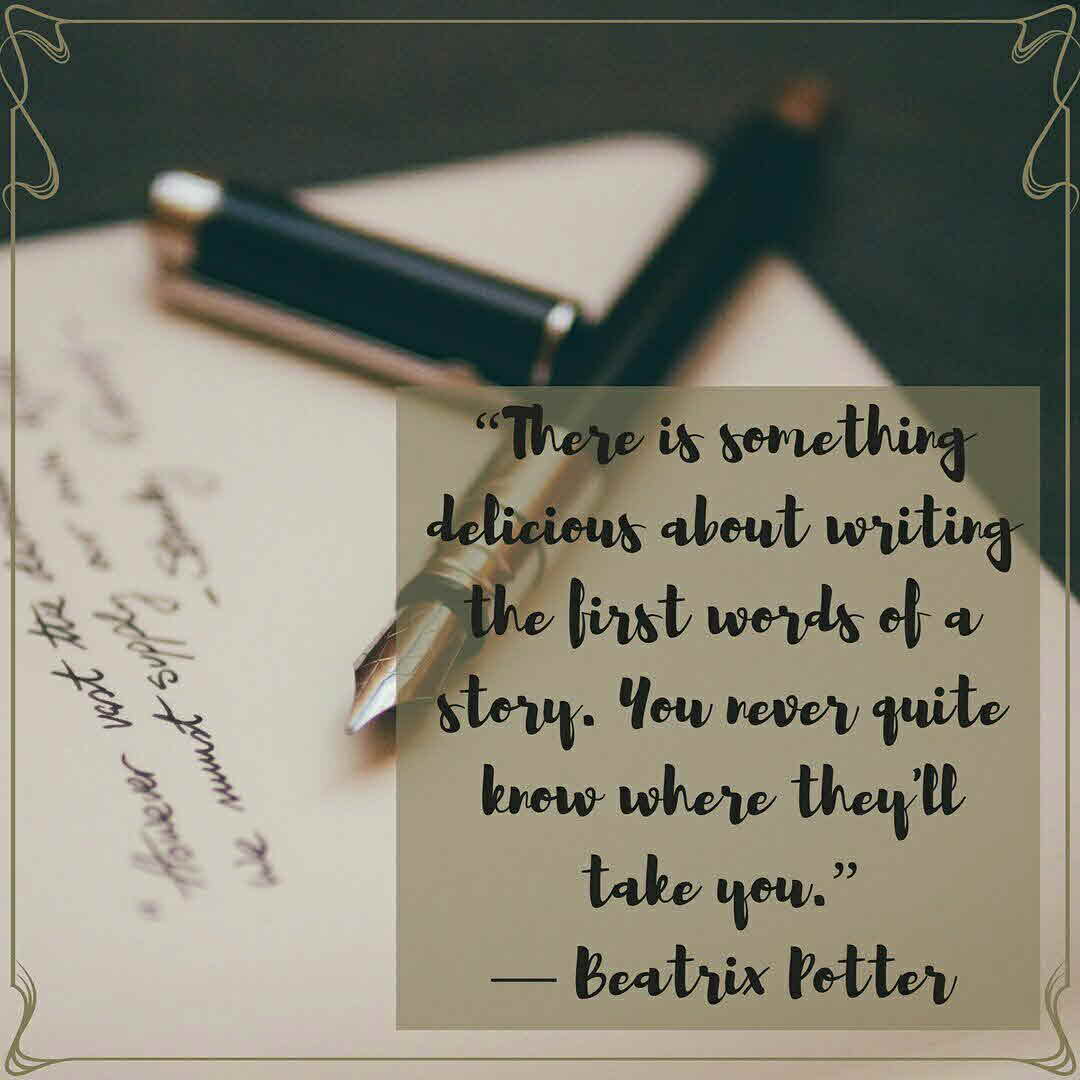 “There is something
delicious about writing
the first words of a
story. You never quite
know where they’ll
take you.”
— Beatrix Potter
"However vast the
we must supply